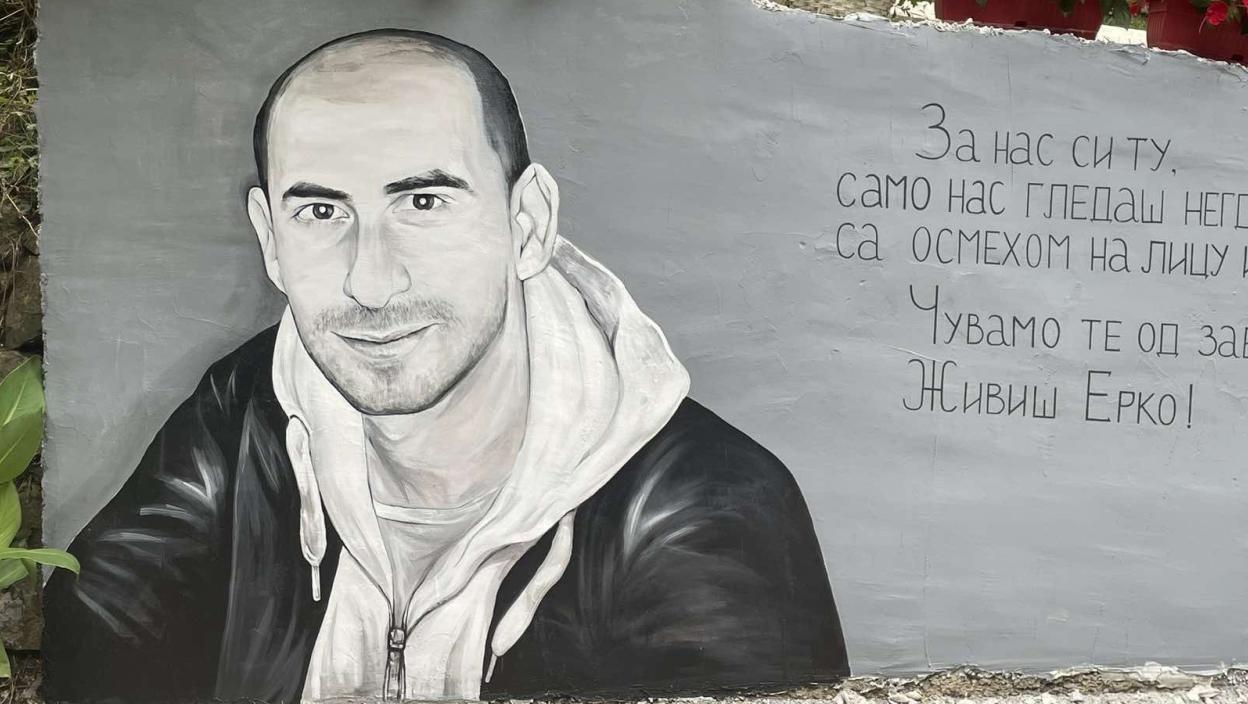 За нас си ту,
само нас гледаш
са осмехом на лицу
Чувамо те од
Живиш Ерко!